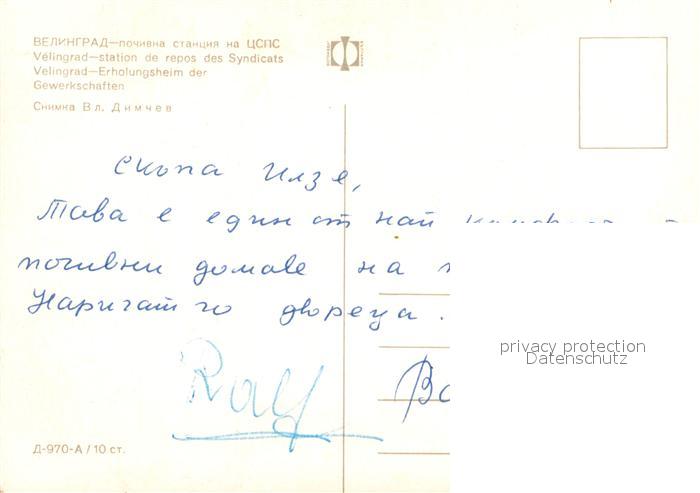 ВЕЛИНГРАД—почивна станция на ЦСПС
Vélingrad—station de repos des Syndicats
Velingrad—Erholungsheim der
Gewerkschaften
Снимка Вл. Димчев
Скъпа Илзе,
Това е един от най
почивни домове на
Наричат го двореца.
Ralf
privacy protection
Datenschutz
Д-970-А / 10 ст.